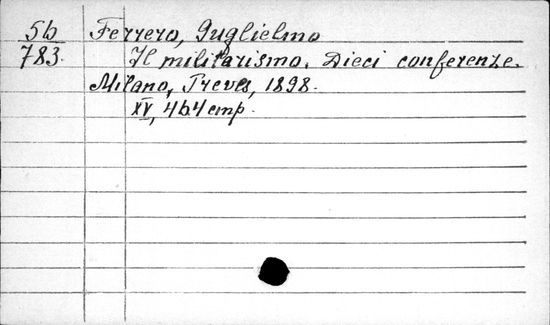 5b Ferrero, Guglielmo
783. Il militarismo. Dieci conferenze.
Milano, Treves, 1898.
XV, 464 стр.